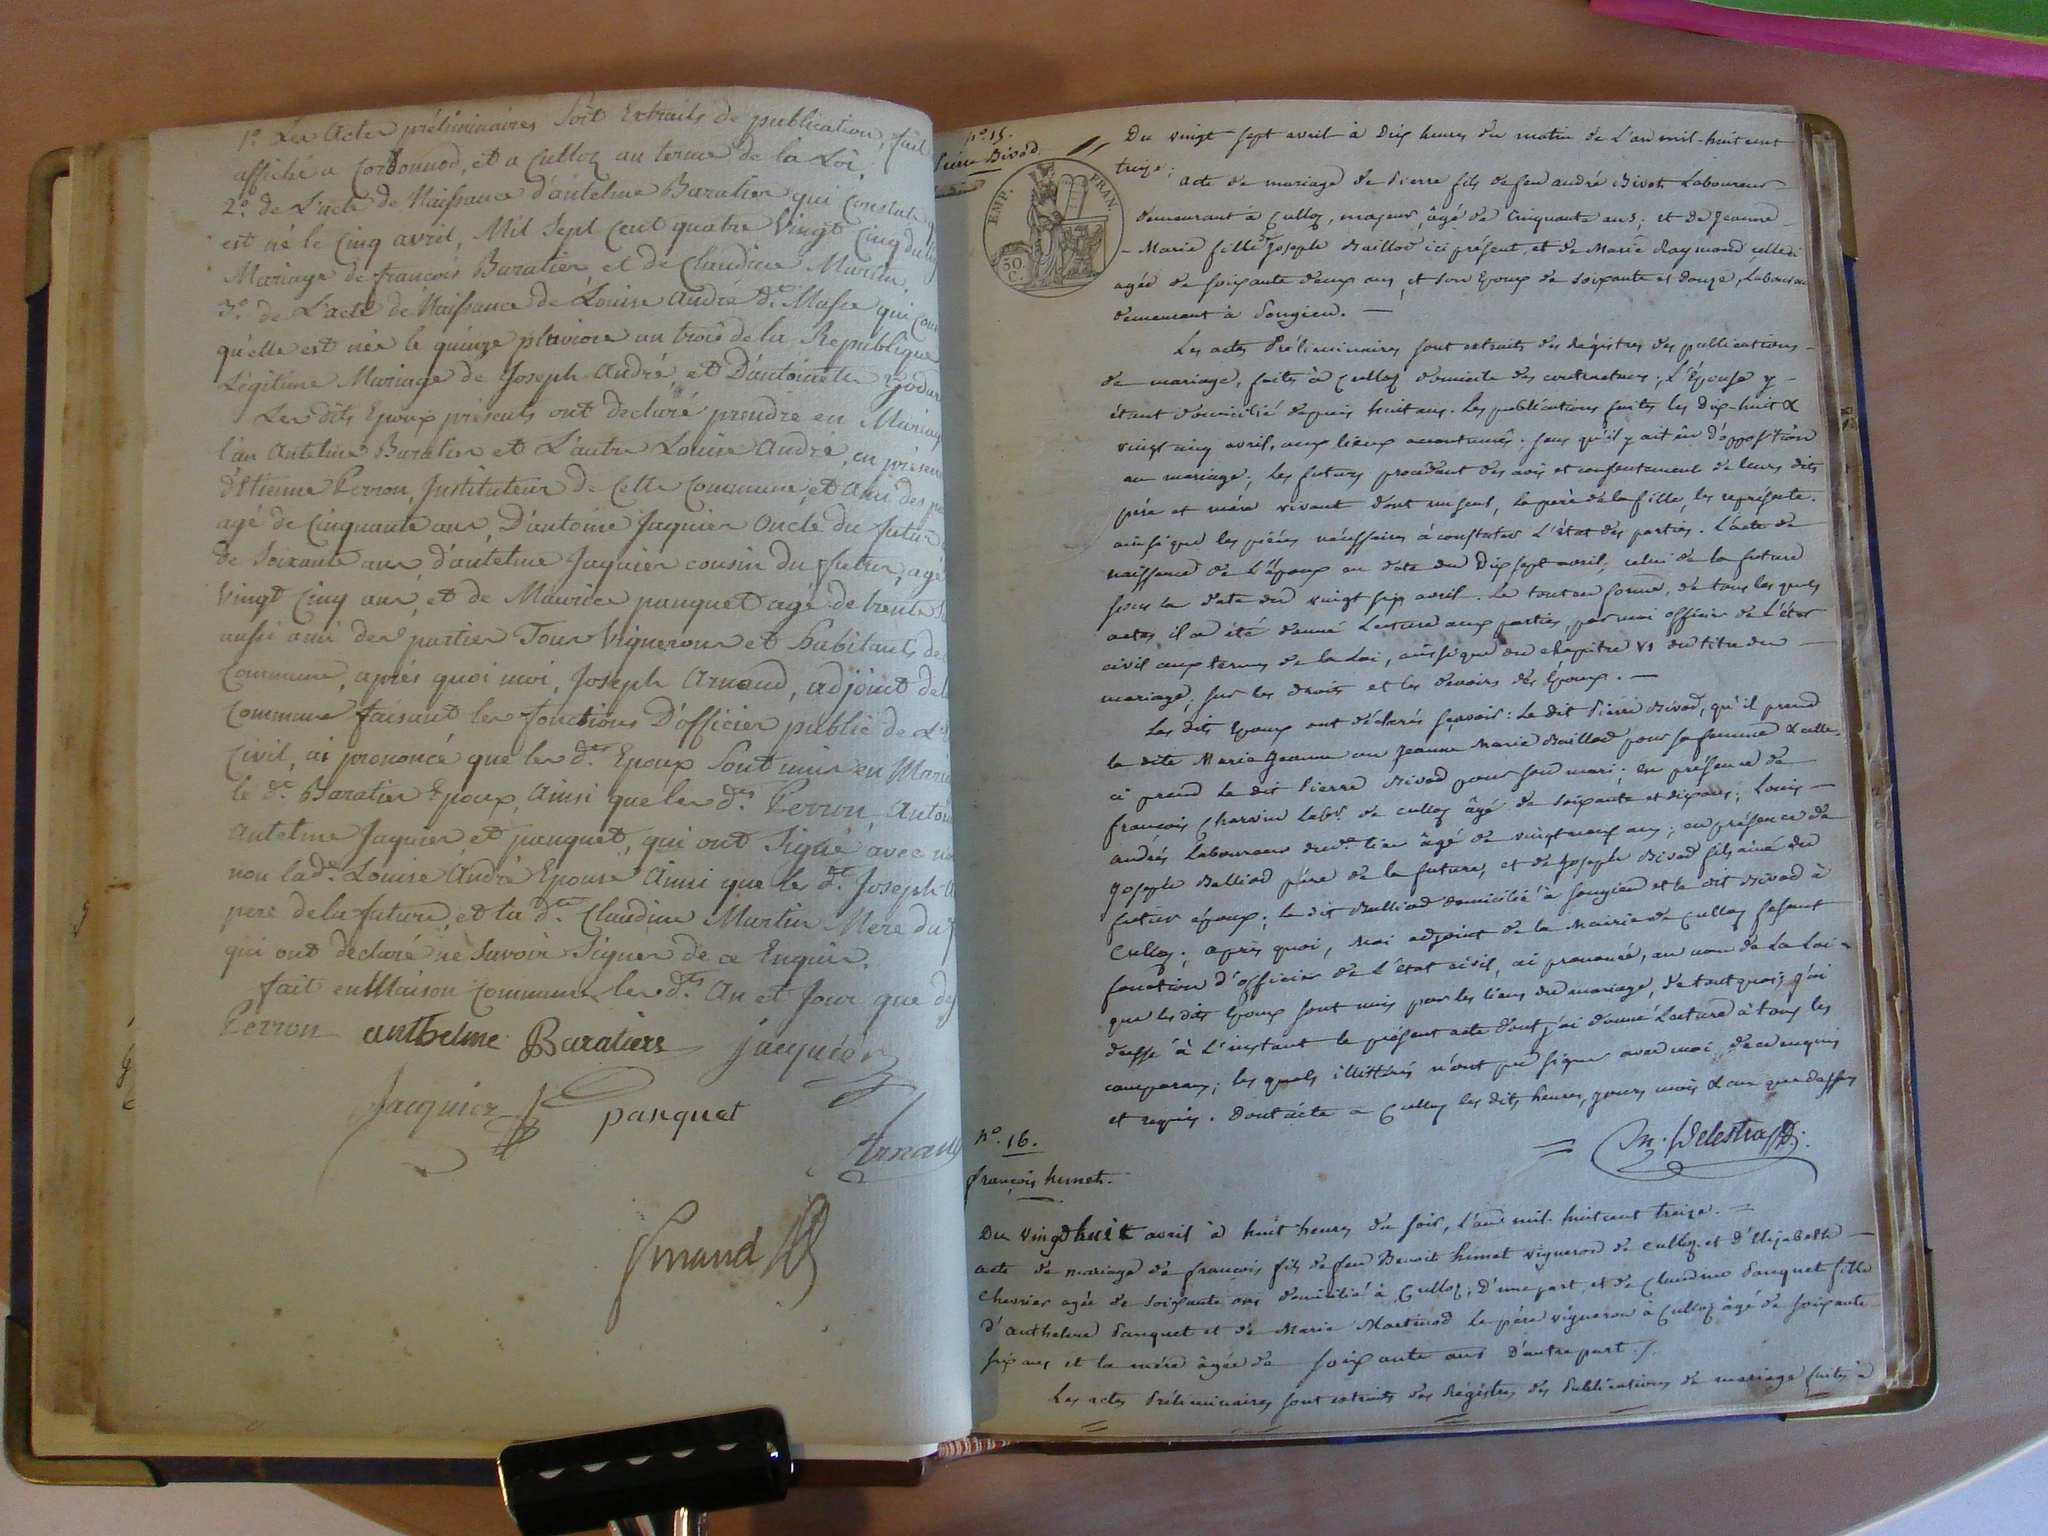 1º Les Actes préliminaires Soit Extraits de publication, fait
affiché a Cordonnod, et a Culloz au terme de la Loi,
2º de L'acte de Naissance d'antelme Baratier qui Constate
est né le Cinq avril, Mil Sept Cent quatre Vingt Cinq du
Mariage de françois Baratier et de Claudine Martin,
3º de L'acte de Naissance de Louise André dte Masse qui
qu'elle est née le quinze pluviose an trois de la Republique
Légitime Mariage de Joseph André, et D'antoinette
Les dits Epoux présents ont declaré prendre en Mariage
l'un Antelme Baratier et L'autre Louise André, en présence
d'Etienne Perron, Instituteur de Cette Commune, et Ami des
agé de Cinquante ans, D'antoine Jaquier Oncle du futur
de Soixante ans, d'antelme Jaquier cousin du futur, agé
Vingt Cinq ans, et de Maurice panquet agé de trente
aussi ami des parties Tous Vignerons et habitants de
Commune, après quoi moi, Joseph Arnaud, adjoint de
Commune faisant les fonctions D'officier public de L'
Civil, ai prononcé que les dts Epoux Sont unis en Maria
le dt Baratier Epoux, Ainsi que les dts Perron, Antoi
Antelme Jaquier et panquet, qui ont Signé avec
non lade Louise André Epouse Ainsi que les dt Joseph
pere dela future, et la dte Claudine Martin Mere du
qui ont déclaré ne Savoir Signer de ce Enquis.
fait en Maison Commune les dts An et Jour que
Perron anthelme Baratiers jacquier
Jacquier panquet
Arnaud
Smand
nº 15.
Pierre Bivod.
EMP. FRAN.
50 C.
Du vingt sept avril à Dix heures du matin de L'an mil-huit cent
treize;
acte de mariage de Pierre fils de feu andré Bivot Laboureur
demeurant à Culloz, majeur, âgé de Cinquante ans; et de Jeanne
- Marie fille de Joseph Baillod ici présent, et de Marie Raymond, celle ci
agée de soixante deux ans, et son Epoux de soixante et douze, Laboureur
demeurant à Songieu. —
Les actes Préliminaires sont extraits des Régistres des publications
de mariage, faits à Culloz domicile des contractans; L'Epouse y
étant domicilié depuis huit ans. Les publications faites les Dix-huit &
vingt cinq avril, aux lieux accoutumés. sans qu'il y ait eû d'opposition
au mariage; les futurs procédant des avis et consentement de leurs dits
père et mére vivant dont un seul, le père de la fille, les représente.
ainsi que les pièces nécessaires à constater L'état des parties. L'acte de
naissance de L'époux en date du Dix sept avril, celui de la future
sous la date du vingt six avril. Le tout en forme, de tous les quels
actes il a été donné Lecture aux parties, par moi officier de L'état
civil aux termes de la Loi, ainsi que du chapitre VI du titre du
mariage, sur les droits et les devoirs des Epoux. —
Les dits Epoux ont déclarés sçavoir: Le dit Pierre Bivod, qu'il prend
la dite Marie Jeanne ou Jeanne Marie Baillod pour sa femme & celle
ci prend le dit Pierre Bivod pour son mari; en présence de
françois Charvin Labr. de Culloz âgé de soixante et dix ans; Louis
andrés Laboureur du dt lieu âgé de vingt neuf ans; en présence de
Joseph Balliod père de la future, et de Joseph Bivod fils ainé du
futur époux; le dit Balliod domicilié à songieu et le dit Bivod à
Culloz; après quoi, Moi adjoint de la Mairie de Culloz fesant
fonction d'officier de L'état civil, ai prononcé, au nom de La Loi
que les dits Epoux sont unis par les liens du mariage, de tout quoi j'ai
dressé à L'instant le présent acte dont j'ai donné Lecture à tous les
comparans; les quels illitérés n'ont pû signer avec moi de ce enquis
et requis. Dont acte a Culloz les dits heures, jours, mois & an que dessus
M. Delestra
nº. 16.
françois humet.
Du vingt huit avril à huit heures du soir, L'an mil. huit cent treize. =
acte de mariage de françois fils de feu Benoit humet vigneron de Culloz et D'Elizabeth
Chevrier agée de soixante ans domicilié à Culloz; D'une part, et de Claudine Panquet fille
d'anthelme Panquet et de Marie Martinod le père vigneron à Culloz âgé de soixante
six ans et la mére âgée de soixante ans D'autre part./.
Les actes Préliminaires sont extraits des Régistres des Publications de mariage faits à